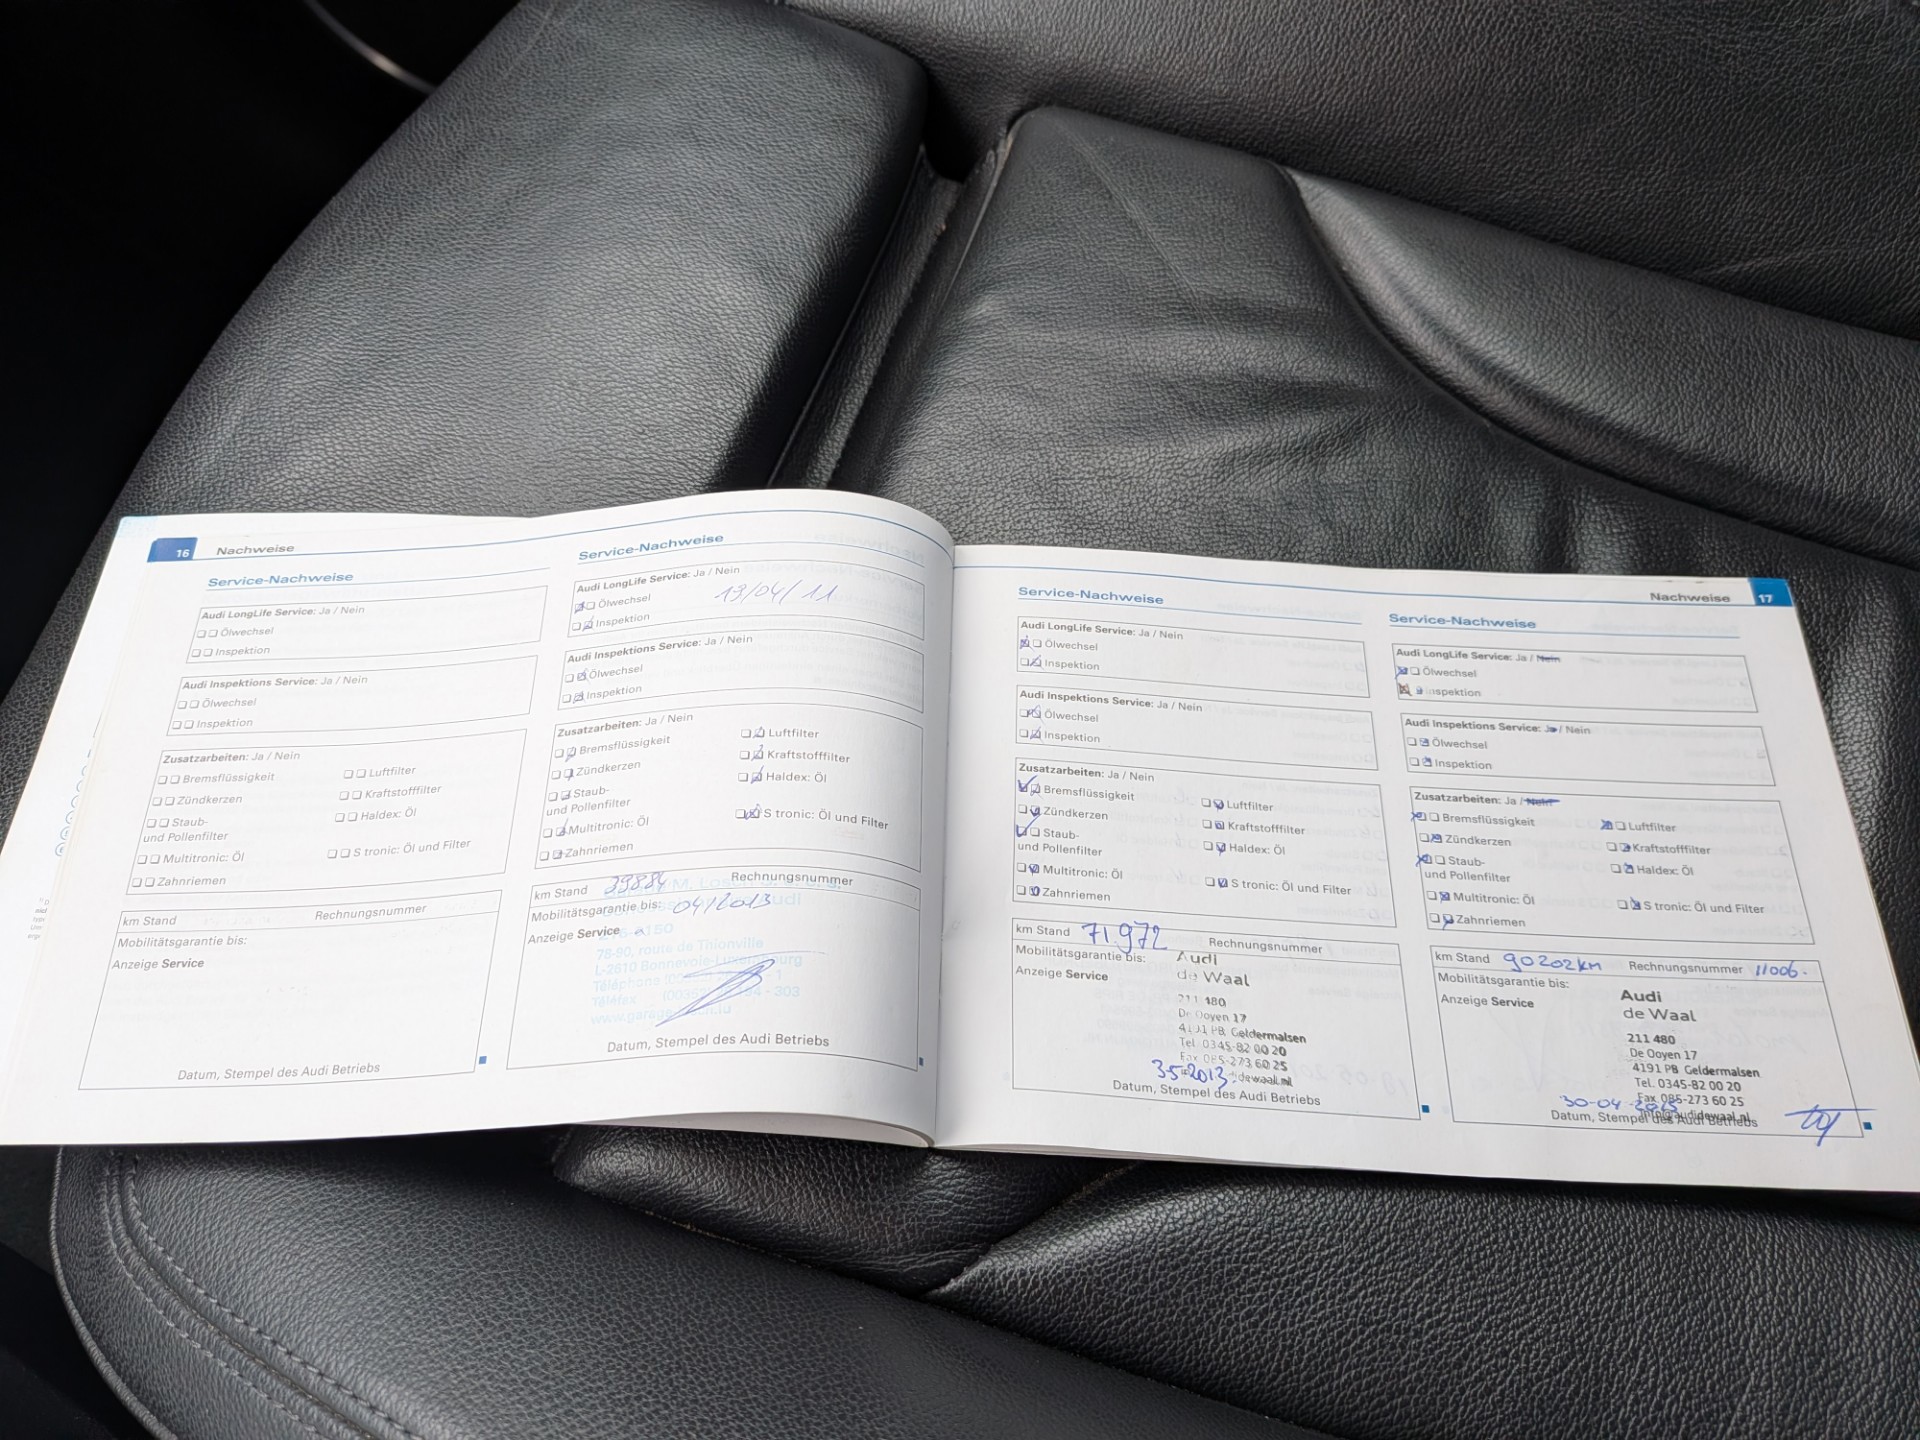 16 Nachweise
Service-Nachweise
Audi LongLife Service: Ja / Nein
Ölwechsel
Inspektion
Audi Inspektions Service: Ja / Nein
Ölwechsel
Inspektion
Zusatzarbeiten: Ja / Nein
Bremsflüssigkeit Luftfilter
Zündkerzen Kraftstofffilter
Staub- Haldex: Öl
und Pollenfilter
Multitronic: Öl S tronic: Öl und Filter
Zahnriemen
km Stand Rechnungsnummer
Mobilitätsgarantie bis:
Anzeige Service
Datum, Stempel des Audi Betriebs
Service-Nachweise
Audi LongLife Service: Ja / Nein
Ölwechsel 19/04/11
Inspektion
Audi Inspektions Service: Ja / Nein
Ölwechsel
Inspektion
Zusatzarbeiten: Ja / Nein
Bremsflüssigkeit Luftfilter
Zündkerzen Kraftstofffilter
Staub- Haldex: Öl
und Pollenfilter
Multitronic: Öl S tronic: Öl und Filter
Zahnriemen
km Stand 39884 Rechnungsnummer
Mobilitätsgarantie bis: 04/2013
Anzeige Service
78-90, route de Thionville
L-2610 Bonnevoie-Luxembourg
Téléphone
Téléfax - 303
Datum, Stempel des Audi Betriebs
Nachweise 17
Service-Nachweise
Audi LongLife Service: Ja / Nein
Ölwechsel
Inspektion
Audi Inspektions Service: Ja / Nein
Ölwechsel
Inspektion
Zusatzarbeiten: Ja / Nein
Bremsflüssigkeit Luftfilter
Zündkerzen Kraftstofffilter
Staub- Haldex: Öl
und Pollenfilter
Multitronic: Öl S tronic: Öl und Filter
Zahnriemen
km Stand 71972 Rechnungsnummer
Mobilitätsgarantie bis:
Anzeige Service
Audi
de Waal
211 480
De Ooyen 17
4191 PB Geldermalsen
Tel. 0345-82 00 20
Fax 085-273 60 25
3-5-2013
Datum, Stempel des Audi Betriebs
Service-Nachweise
Audi LongLife Service: Ja / Nein
Ölwechsel
Inspektion
Audi Inspektions Service: Ja / Nein
Ölwechsel
Inspektion
Zusatzarbeiten: Ja / Nein
Bremsflüssigkeit Luftfilter
Zündkerzen Kraftstofffilter
Staub- Haldex: Öl
und Pollenfilter
Multitronic: Öl S tronic: Öl und Filter
Zahnriemen
km Stand 90202km Rechnungsnummer 11006.
Mobilitätsgarantie bis:
Anzeige Service
Audi
de Waal
211 480
De Ooyen 17
4191 PB Geldermalsen
Tel. 0345-82 00 20
Fax 085-273 60 25
30-04-2015 info@audidewaal.nl
Datum, Stempel des Audi Betriebs